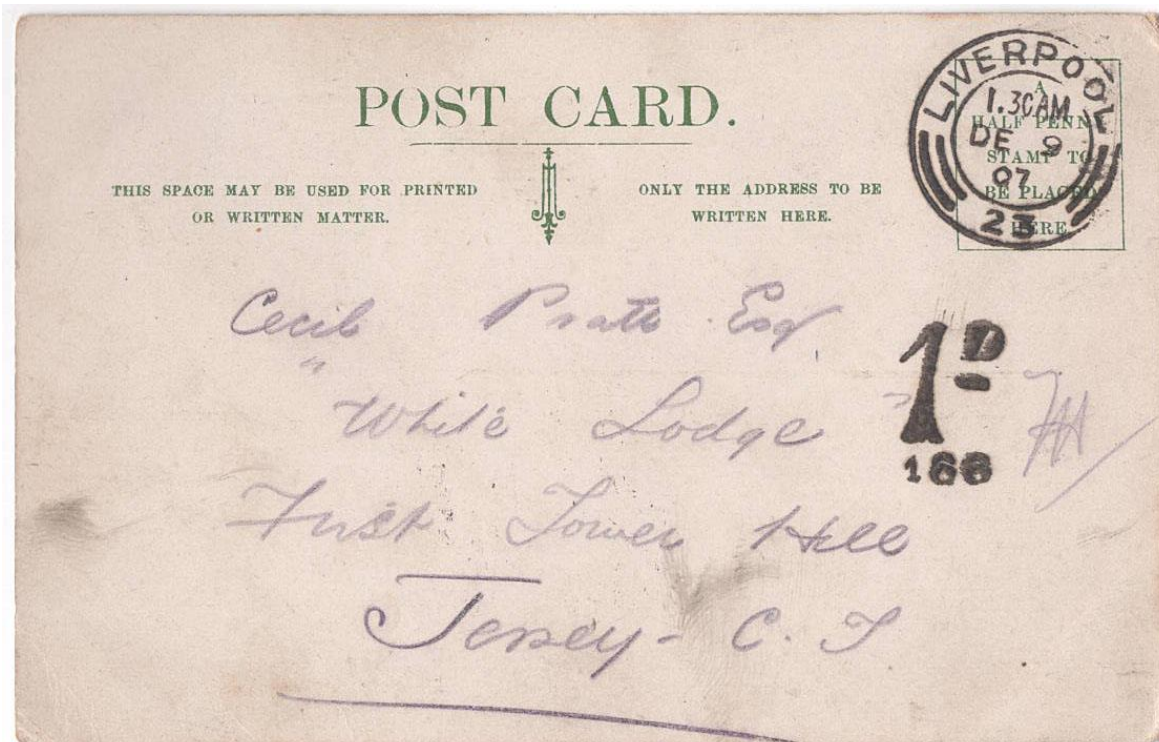 POST CARD.
THIS SPACE MAY BE USED FOR PRINTED
OR WRITTEN MATTER.
ONLY THE ADDRESS TO BE
WRITTEN HERE.
A
HALF PENNY
STAMP TO
BE PLACED
HERE
LIVERPOOL
1.30AM
DE 9
07
23
Cecil Pratt Esq
"White Lodge"
First Tower Hill
Jersey - C. I
1D
166